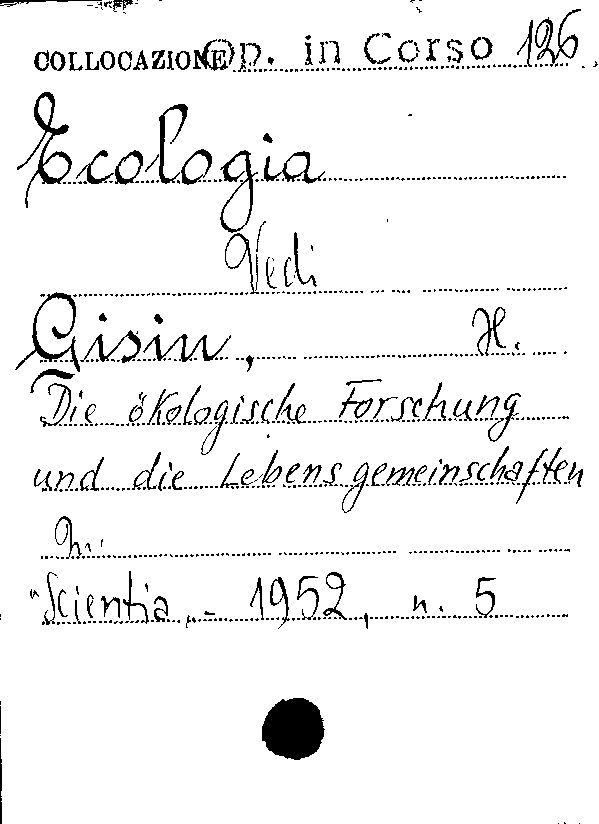 COLLOCAZIONE Op. in Corso 126
Ecologia
Vedi
Gisin, H.
Die ökologische Forschung
und die Lebensgemeinschaften
In:
"Scientia„ - 1952, n. 5